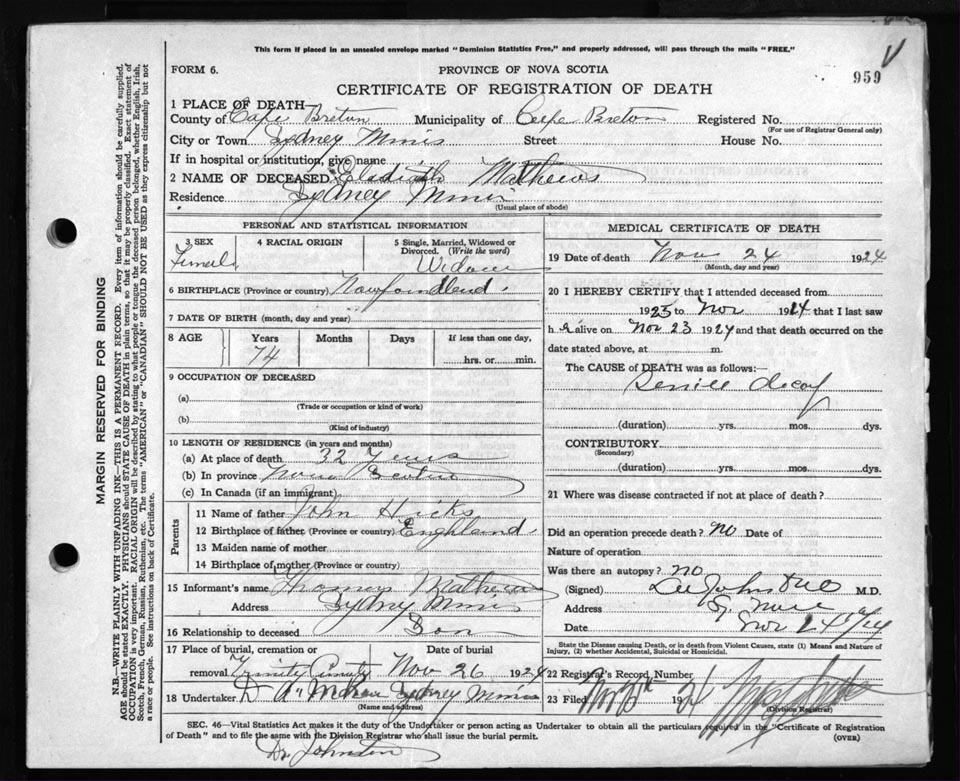 This form if placed in an unsealed envelope marked "Dominion Statistics Free," and properly addressed, will pass through the mails "FREE."
FORM 6.
PROVINCE OF NOVA SCOTIA
959
CERTIFICATE OF REGISTRATION OF DEATH
1 PLACE OF DEATH
County of Cape Breton Municipality of Cape Breton Registered No.
(For use of Registrar General only)
City or Town Sydney Mines Street House No.
If in hospital or institution, give name
2 NAME OF DECEASED Mathews
Residence Sydney Mines
(Usual place of abode)
PERSONAL AND STATISTICAL INFORMATION
3 SEX 4 RACIAL ORIGIN 5 Single, Married, Widowed or Divorced. (Write the word)
Female Widow
6 BIRTHPLACE (Province or country) Newfoundland
7 DATE OF BIRTH (month, day and year)
8 AGE Years Months Days If less than one day,
74 hrs. or min.
9 OCCUPATION OF DECEASED
(a)
(Trade or occupation or kind of work)
(b)
(Kind of industry)
10 LENGTH OF RESIDENCE (in years and months)
(a) At place of death 32 Years
(b) In province Nova Scotia
(c) In Canada (if an immigrant)
Parents
11 Name of father John Hicks
12 Birthplace of father (Province or country) England
13 Maiden name of mother
14 Birthplace of mother (Province or country)
15 Informant's name Thomas Mathews
Address Sydney Mines
16 Relationship to deceased Son
17 Place of burial, cremation or
removal Trinity Nov 26 1924
18 Undertaker Sydney Mines
(Name and address)
MEDICAL CERTIFICATE OF DEATH
19 Date of death Nov 24 1924
(Month, day and year)
20 I HEREBY CERTIFY that I attended deceased from
1923 to Nov 1924 that I last saw
h er alive on Nov 23 1924 and that death occurred on
date stated above, at m.
The CAUSE of DEATH was as follows:—
Senile decay
(duration) yrs. mos. dys.
CONTRIBUTORY
(Secondary)
(duration) yrs. mos. dys.
21 Where was disease contracted if not at place of death?
Did an operation precede death? No Date of
Nature of operation
Was there an autopsy? no
(Signed) M.D.
Address
Date Nov 24
State the Disease causing Death, or in death from Violent Causes, state (1) Means and Nature of
Injury, (2) whether Accidental, Suicidal or Homicidal.
22 Registrar's Record Number
23 Filed
(Division Registrar)
SEC. 46—Vital Statistics Act makes it the duty of the Undertaker or person acting as Undertaker to obtain all the particulars required in the "Certificate of Registration
of Death" and to file the same with the Division Registrar who shall issue the burial permit.
(OVER)
Dr. Johnston
MARGIN RESERVED FOR BINDING
N.B.—WRITE PLAINLY WITH UNFADING INK—THIS IS A PERMANENT RECORD. Every item of information should be carefully supplied.
AGE should be stated EXACTLY. PHYSICIANS should STATE CAUSE OF DEATH in plain terms, so that it may be properly classified. Exact statement of
OCCUPATION is very important. RACIAL ORIGIN will be described by stating to what people or tongue the deceased person belonged, whether English, Irish,
Scotch, French, German, Russian, Ruthenian, etc. The terms "AMERICAN" or "CANADIAN" SHOULD NOT BE USED as they express citizenship but not
a race or people. See instructions on back of Certificate.